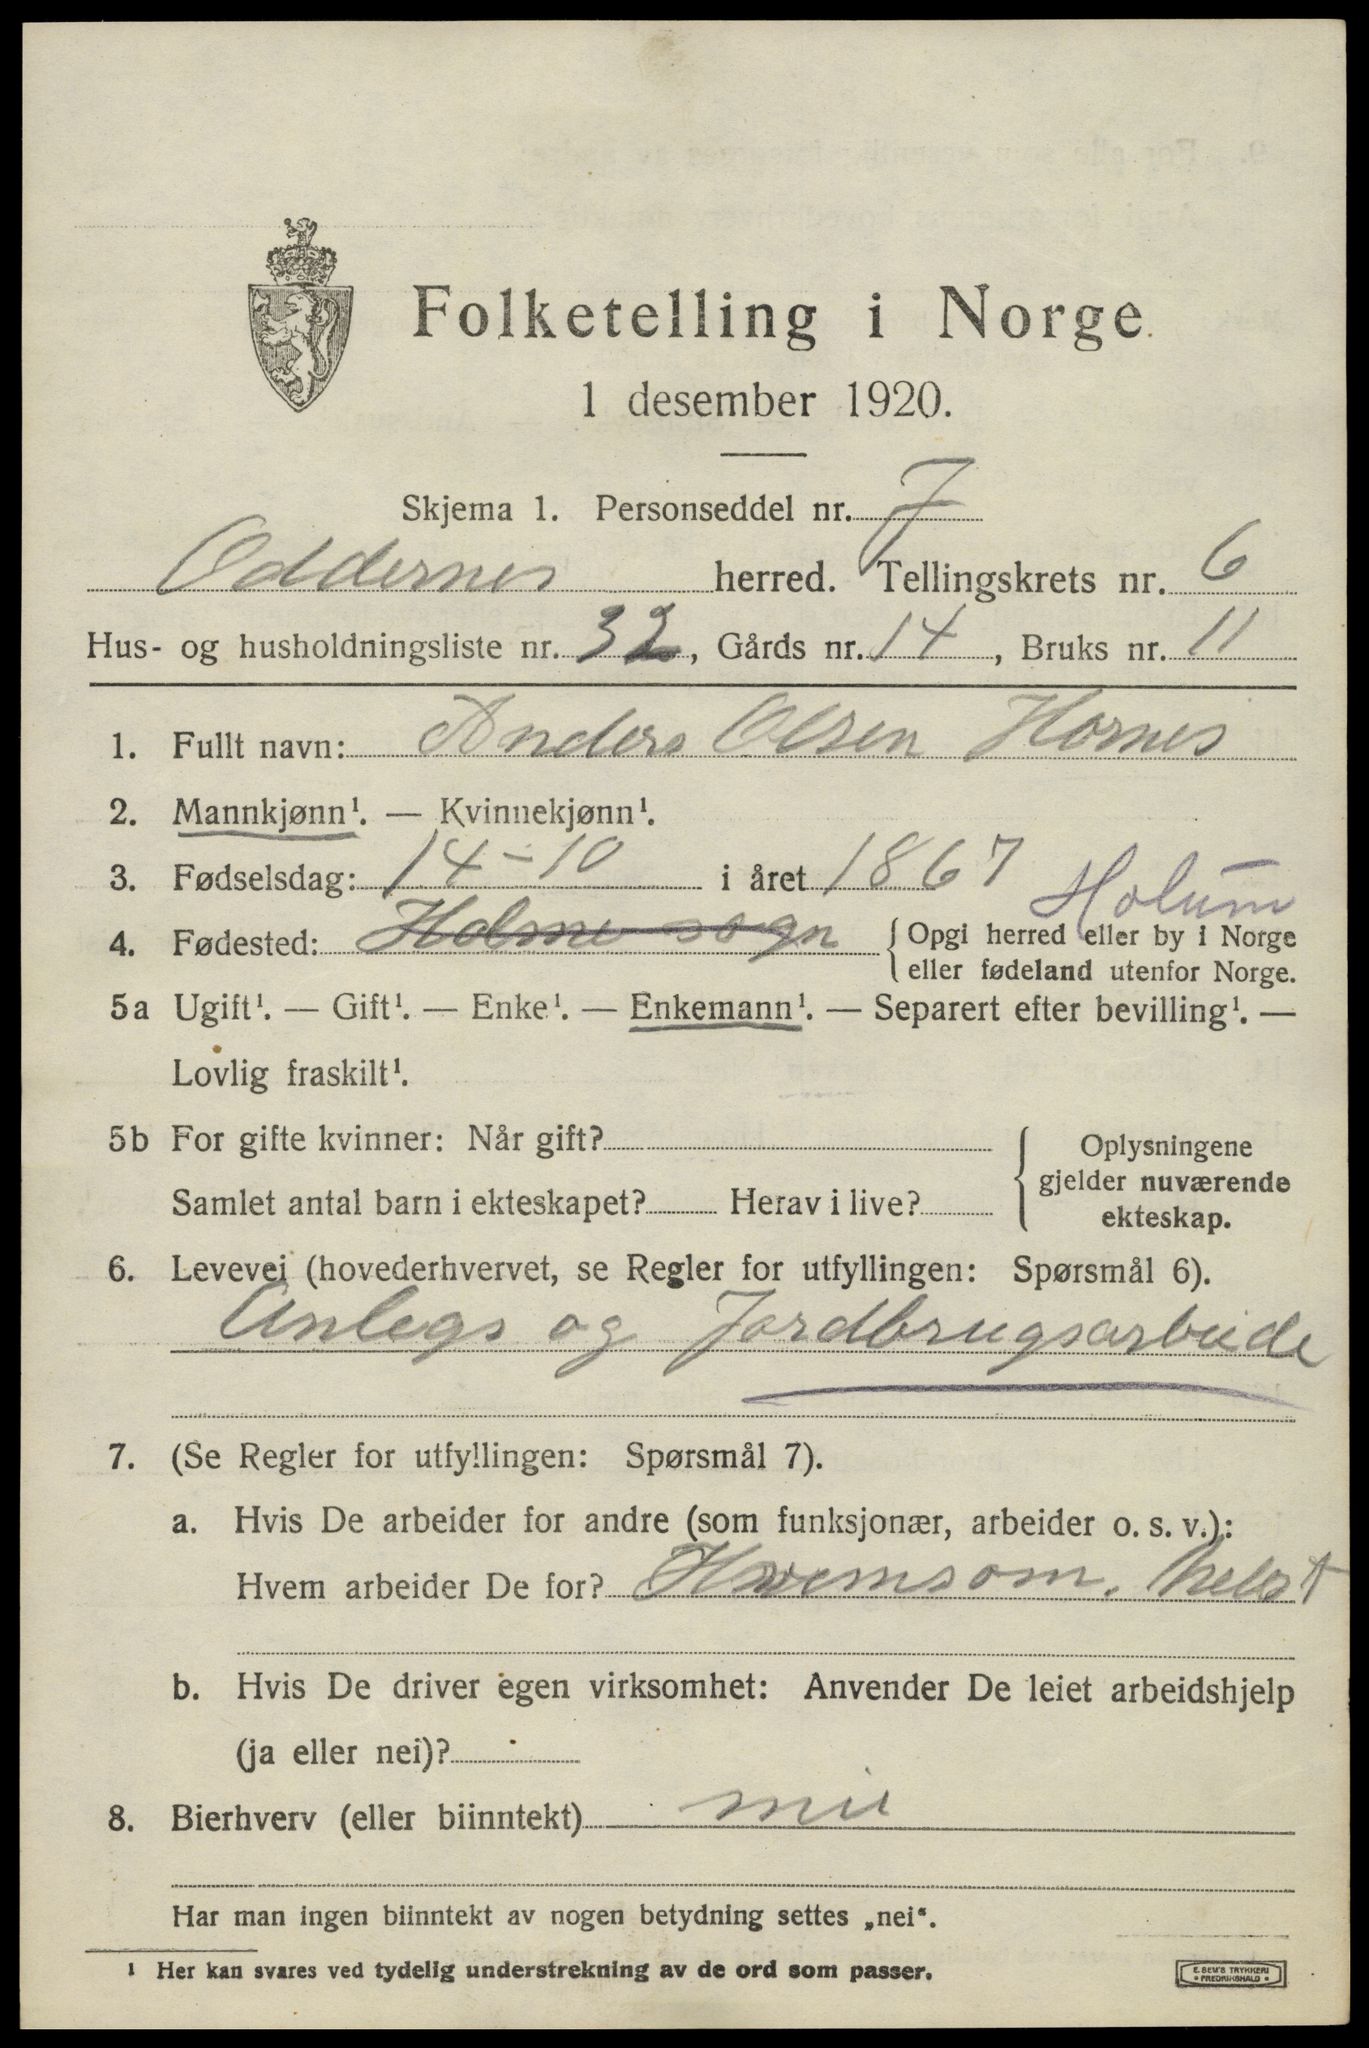 Folketelling i Norge
1 desember 1920.
Skjema 1. Personseddel nr. 7
Oddernes herred. Tellingskrets nr. 6
Hus- og husholdningsliste nr. 32, Gårds nr. 14, Bruks nr. 11
1. Fullt navn: Anders Olsen Hornes
2. Mannkjønn¹. — Kvinnekjønn¹.
3. Fødselsdag: 14-10 i året 1867
Holum
4. Fødested: Holme sogn { Opgi herred eller by i Norge
eller fødeland utenfor Norge.
5a Ugift¹. — Gift¹. — Enke¹. — Enkemann¹. — Separert efter bevilling¹. —
Lovlig fraskilt¹.
5b For gifte kvinner: Når gift?
Samlet antal barn i ekteskapet? Herav i live?
{ Oplysningene
gjelder nuværende
ekteskap.
6. Levevei (hovederhvervet, se Regler for utfyllingen: Spørsmål 6).
Anlegs og Jordbrugsarbeide
7. (Se Regler for utfyllingen: Spørsmål 7).
a. Hvis De arbeider for andre (som funksjonær, arbeider o. s. v.):
Hvem arbeider De for? Hvemsom. helst
b. Hvis De driver egen virksomhet: Anvender De leiet arbeidshjelp
(ja eller nei)?
8. Bierhverv (eller biinntekt)
Har man ingen biinntekt av nogen betydning settes „nei“.
¹ Her kan svares ved tydelig understrekning av de ord som passer.
E. SEM'S TRYKKERI
• FREDRIKSHALD •